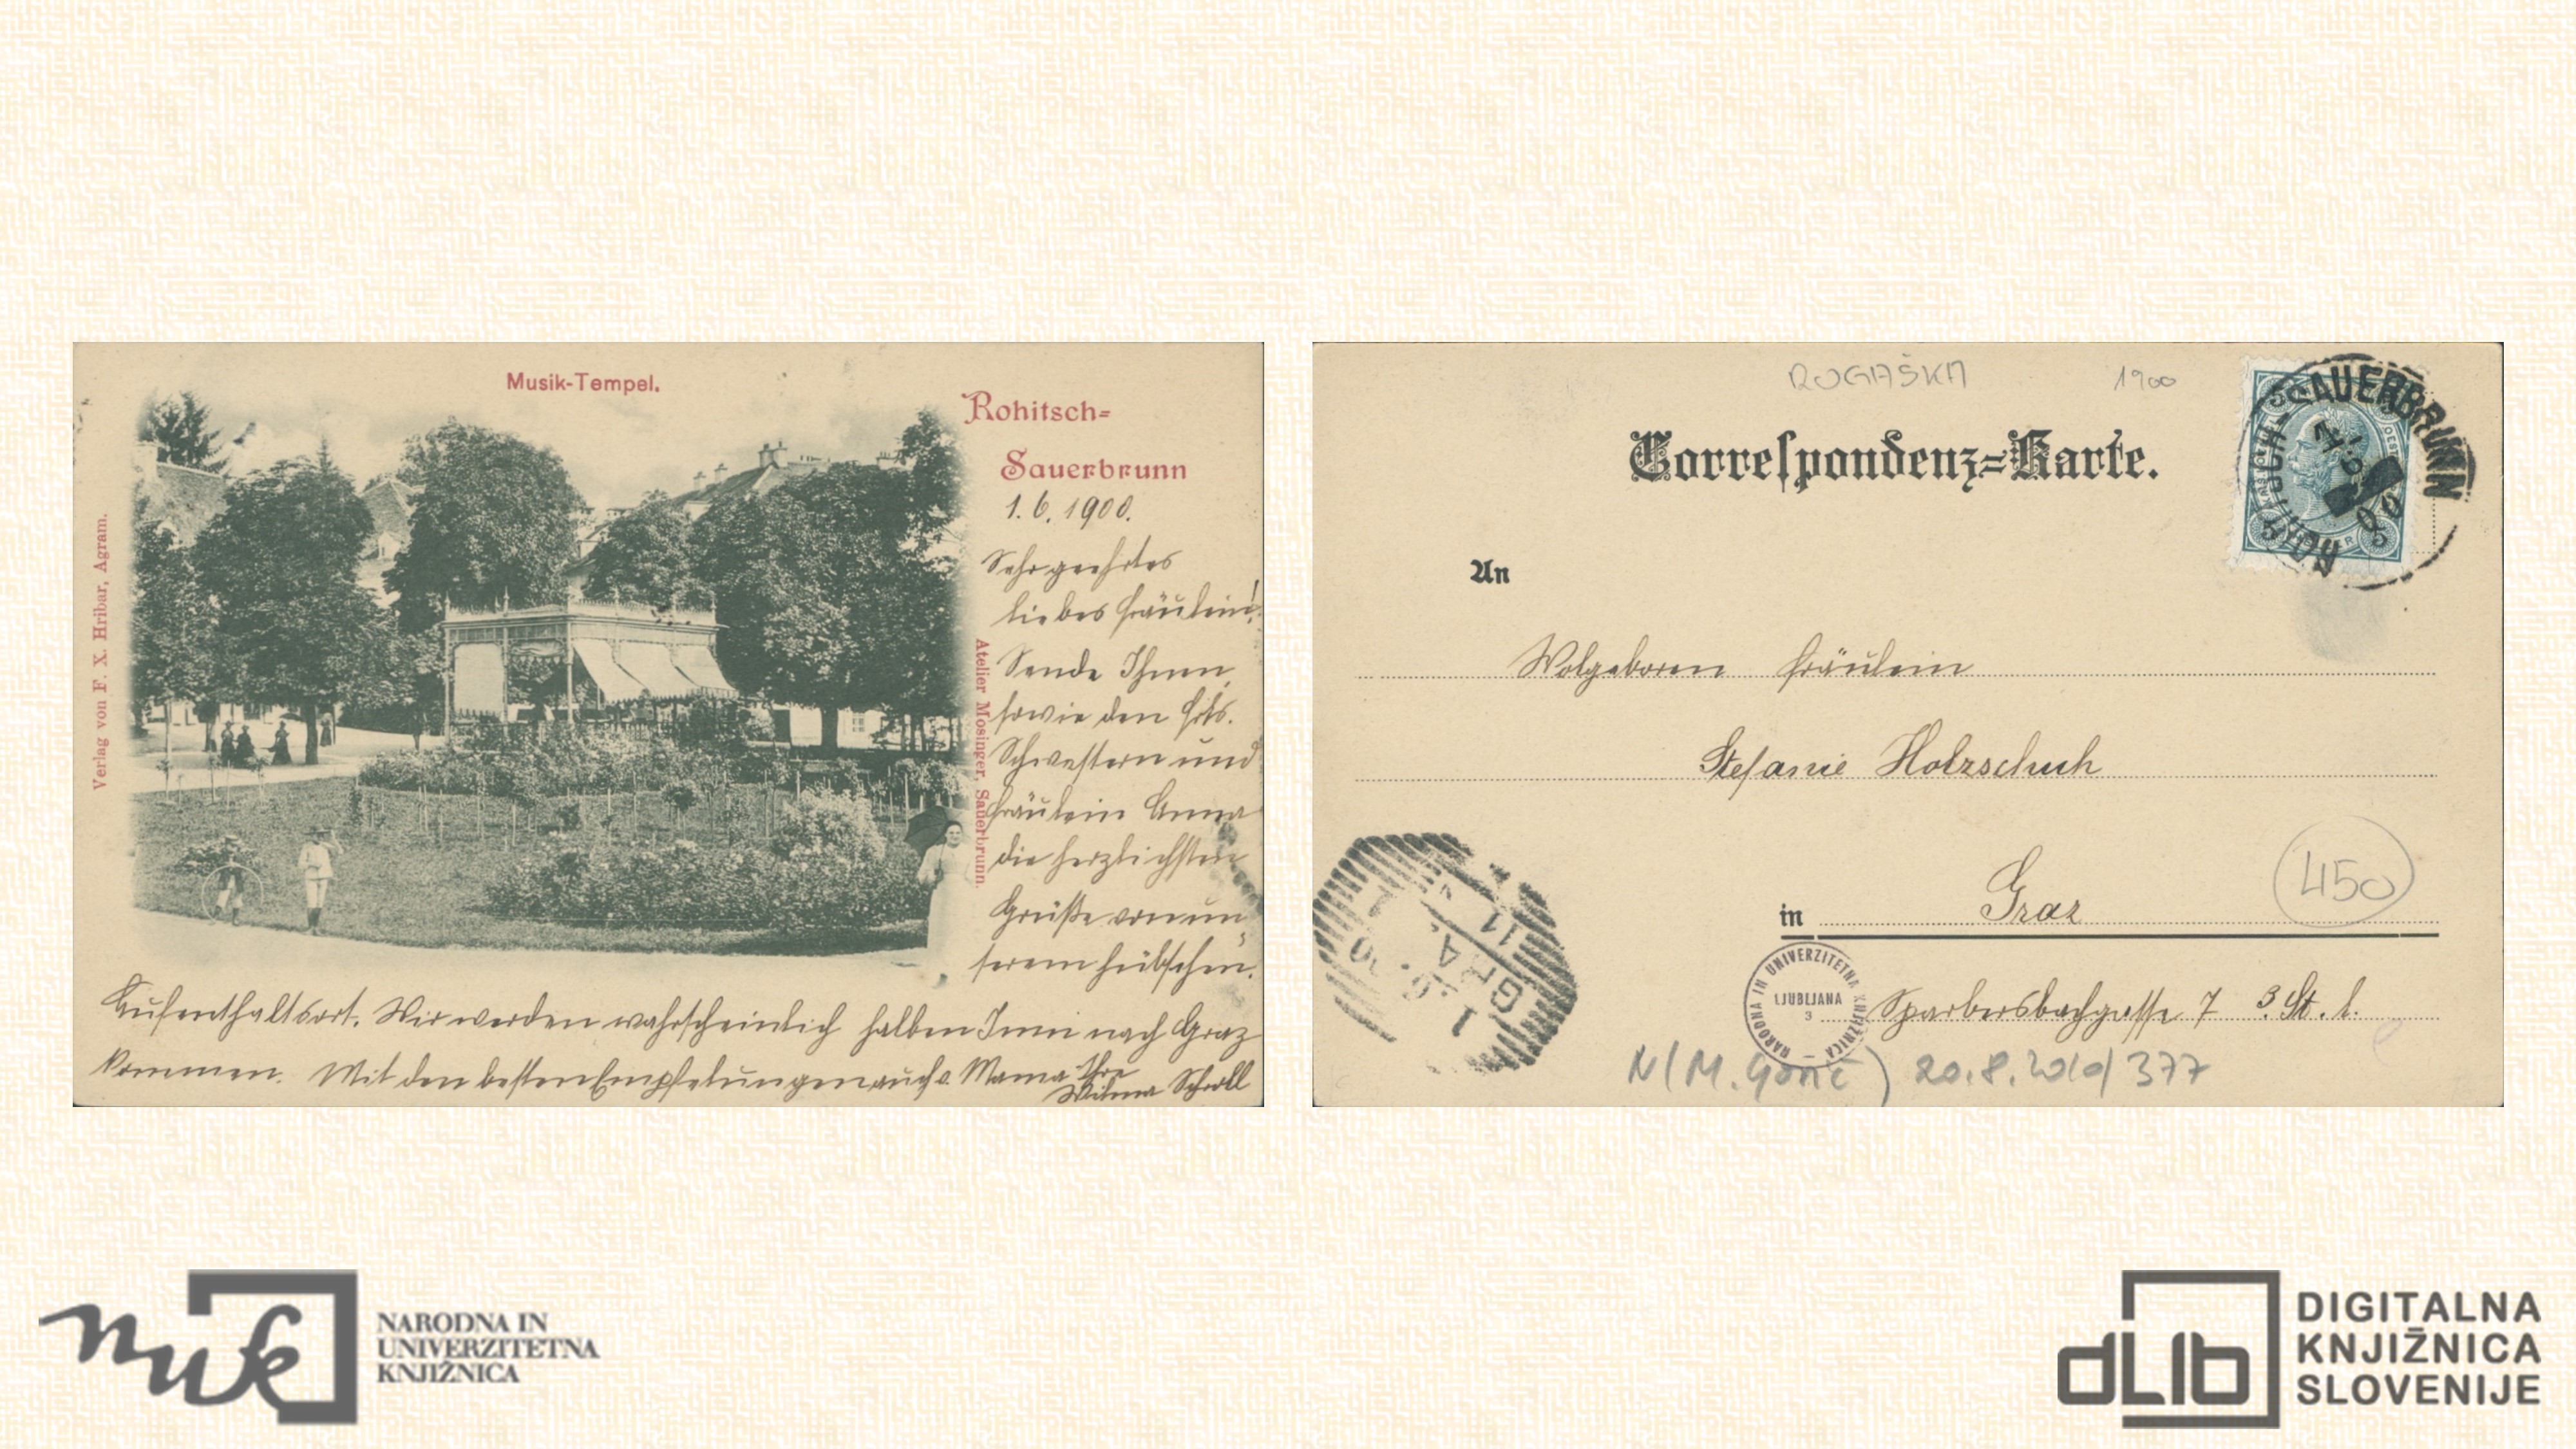 Musik-Tempel.
Rohitsch-
Sauerbrunn
1. 6. 1900.
Sehr geehrtes
liebes Fräulein!
Sende Ihnen,
sowie den Frls.
Schwestern und
Fräulein Anna
die herzlichsten
Grüße von un-
serem hübschen
Aufenthaltsort. Wir werden wahrscheinlich halben Juni nach Graz
kommen. Mit den besten Empfelungen auch a. Mama Ihre
Wilma Schroll
Verlag von F. X. Hribar, Agram.
Atelier Mosinger, Sauerbrunn.
ROGAŠKA 1900
Correspondenz-Karte.
ROHITSCH-SAUERBRUNN
An
Wolgeboren Fräulein
Stefanie Holzschuh
in Graz
450
Sparbersbachgasse 7 3. St. l.
NARODNA IN UNIVERZITETNA KNJIŽNICA
LJUBLJANA
3
N(M. Gorič) 20.8.2010/377
NARODNA IN
UNIVERZITETNA
KNJIŽNICA
nuk
dLib
DIGITALNA
KNJIŽNICA
SLOVENIJE